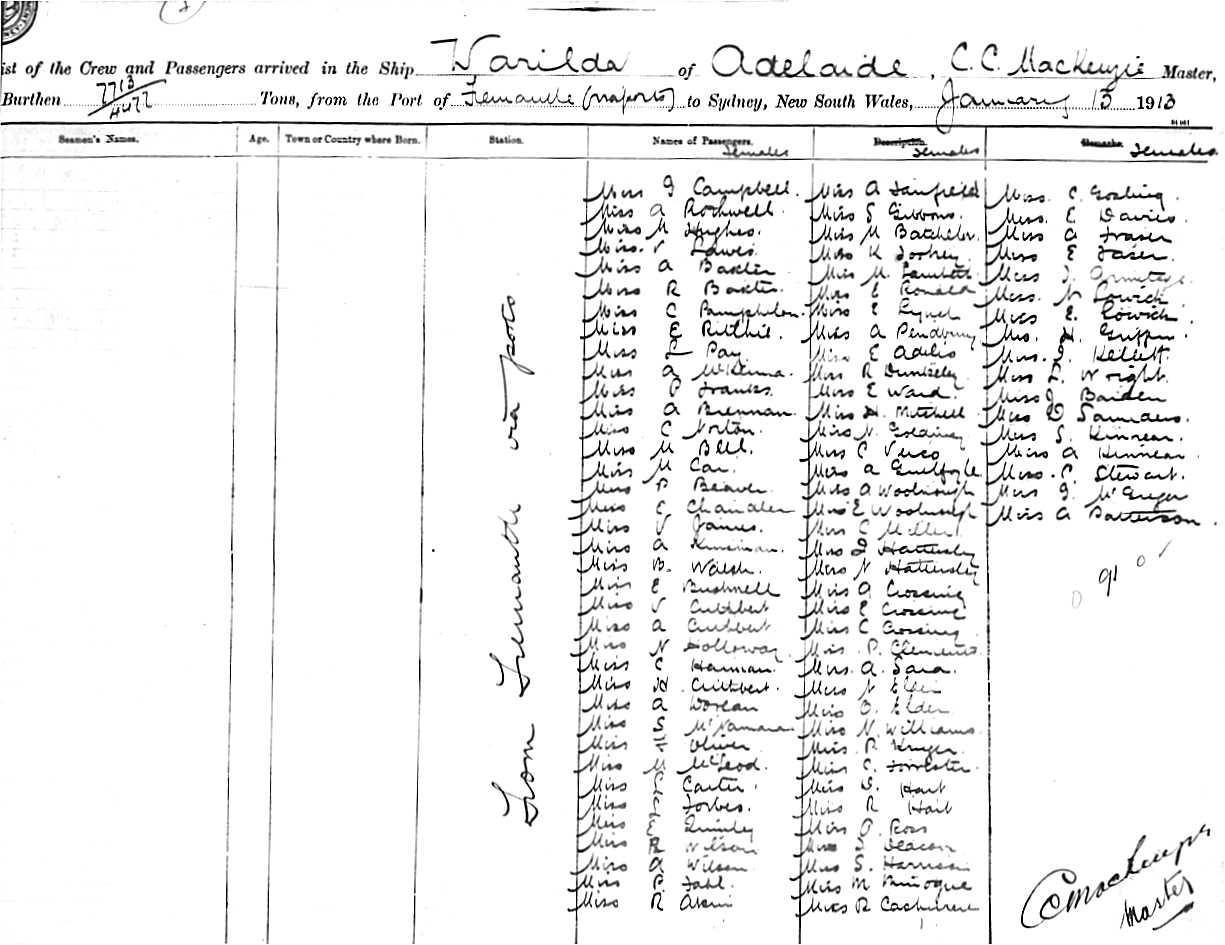 2
ist of the Crew and Passengers arrived in the Ship Warilda of Adelaide, C. C. MacKenzie Master,
Burthen 7713/4477 Tons, from the Port of Fremantle (via ports) to Sydney, New South Wales, January 13 1913
Seamen's Names. Age. Town or Country where Born. Station. Names of Passengers. Description. Remarks.
Females Females Females
From Fremantle via ports
Miss J Campbell.
Miss A Rockwell.
Miss M Hughes.
Miss V Lewis.
Miss A Baxter
Miss R Baxter.
Miss C Pamphilon.
Miss E Ritchie.
Miss L Pay
Miss A McKenna.
Miss P Franks.
Miss A Brennan.
Miss C Norton.
Miss M Bell.
Miss M Car.
Miss P Beaver.
Miss E Chandler
Miss V James.
Miss A Kinsman.
Miss B. Walsh.
Miss E Bushnell
Miss V Cuthbert
Miss A Cuthbert
Miss N Holloway.
Miss C Hannan.
Miss H Cuthbert.
Miss A
Miss S McNamara
Miss Oliver
Miss M McLeod.
Miss Carter.
Miss Forbes.
Miss E Quinley
Miss R Wilson
Miss A Wilson
Miss P Fahl.
Miss R
Miss A Fairfield
Miss S Gibbons.
Miss M Batchelor.
Miss K
Miss M. Lambeth
Miss E Ronald
Miss E Lynch
Miss A Pendbury
Miss E
Miss R Dunkley
Miss E Ward.
Miss H. Mitchell
Miss N. Goldring
Miss C Verco
Miss A Guilfoyle
Miss A Woolnough
Miss E Woolnough
Miss C Miller
Miss J Hattersley
Miss N Hattersley
Miss A Crossing
Miss E Crossing
Miss C Crossing
Miss P. Clements
Miss A. Sara.
Miss N Elder
Miss O. Elder
Miss N. Williams
Miss R Kruger.
Miss C. Forrester
Miss D. Hart
Miss R Hart
Miss O. Ross
Miss S Deacon
Miss S. Harrison
Miss M
Miss R
Miss C. Gosling
Miss. E Davies.
Miss A Fraser
Miss E Fraser.
Miss J. Armitage.
Miss. N Lowick
Miss E. Lowick.
Miss. H. Griffin
Miss. J. Kellett.
Miss L. Wright.
Miss J Baiden
Miss D Saunders.
Miss S. Kinnear.
Miss A Kinnear.
Miss. C. Stewart.
Miss J. McGregor
Miss A Patterson.
91
C C MacKenzie
Master